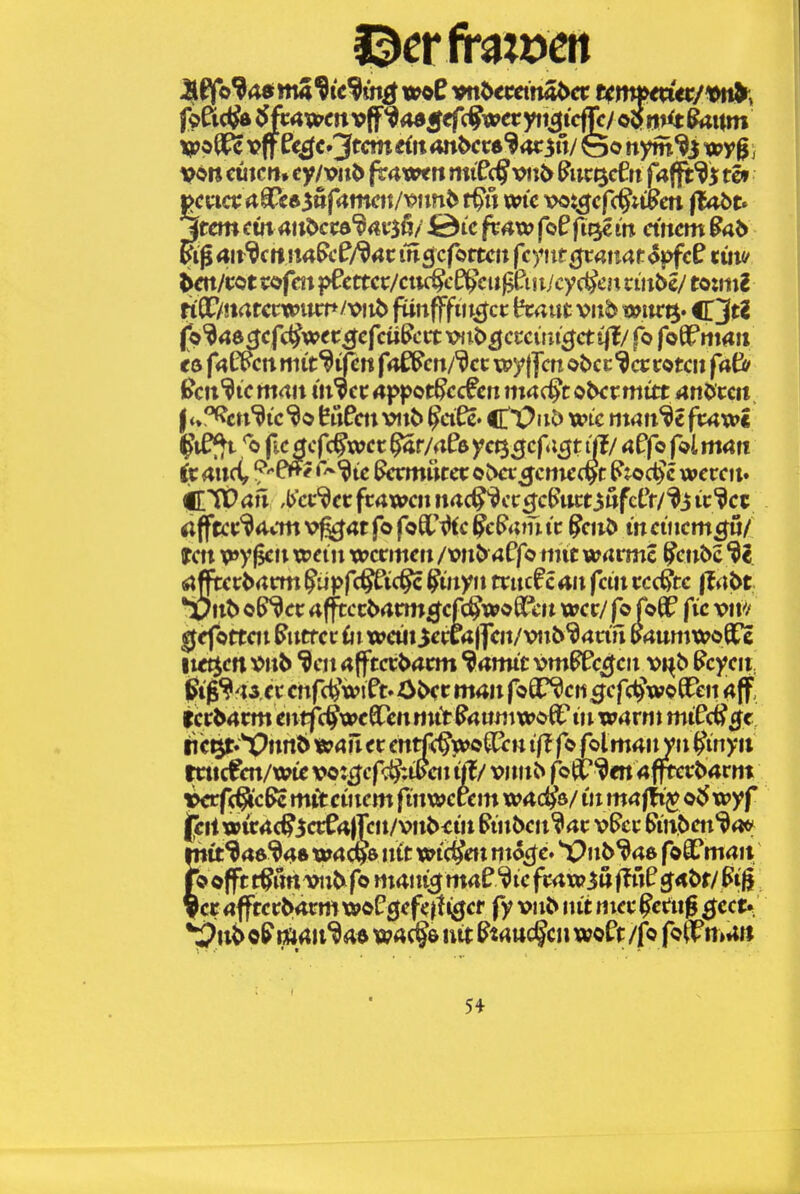 Der frawen
Also das mā die ding wol vndereināder temperier/vnd
sölichs d frawen vff das geschwer yngiesse/ od mit baum
wollē vff lege. Item ein anders dar zů/ So nym dz wyß
von einem ey/vnd frawen milch vnd burtzeln safft dz tē
perier alles zůsamen/vnnd thů wie vorgeschriben stadt.
Item ein anders darzů/ Die fraw sol sitzē in einem bad
biß an den nabel/dar in gesorten seynt granat öpfel rin
den/rot rosen pletter/ rinde/ tormē
till/naterwurtz/vnd fünffinger kraut vnd wurtz. Itē
so das geschwer gesübert vnd gereiniget ist/ so soll man
es salben mit disen salben/der wyssen oder der roten sal
ben die man in der appotecken macht oder mitt andren
salben die do külen vnd heilē. Vnd wie man dē frawē
hilfft so sie geschwer har/als yetz gesagt ist/ also sol man
ir auch die bermůter oder gemecht broche weren.
Wañ aber der frawen nach der geburt zůfelt/dz ir der
affterdarm vßgat so soll die hebam ir hend in einem gů/
ten wyßen wein wermen/vnd also mit warmē hendē dē
affterdarm hüpschlichē hinyn truckē an sein rechte stadt
Vnd ob der affterdarm geschwollen wer/ so soll sie vn
gesotten butter in wein zerlassen/vnd darin baumwollē
netzen vnd den affterdarm damit vmblegen vnd beyen,
biß das er enschwilt. Oder man soll den geschwollen aff
terdarm entschwellen mit baumwoll in warm milch ge
netzt. Vnnd wañ er entschwollen ist so solman yn hinyn
trucken/wie vorgeschriben ist/ vnnd soll den affterdarm
verschiebē mit einem sinwelem wachs/ in mastix od wyß
sen wirach zerlassen/vnd ein binden dar vber binden da
mit das das wachs nit wichen möge. Vnd das soll man
so offt thůn vnd so manig mal die fraw zů stůl gadt/ biß
der affterdarm wol gefestiger sy vnd nit mer heruß geet.
Vnd ob man das wachs nit brauchen wolt/so soll man
54